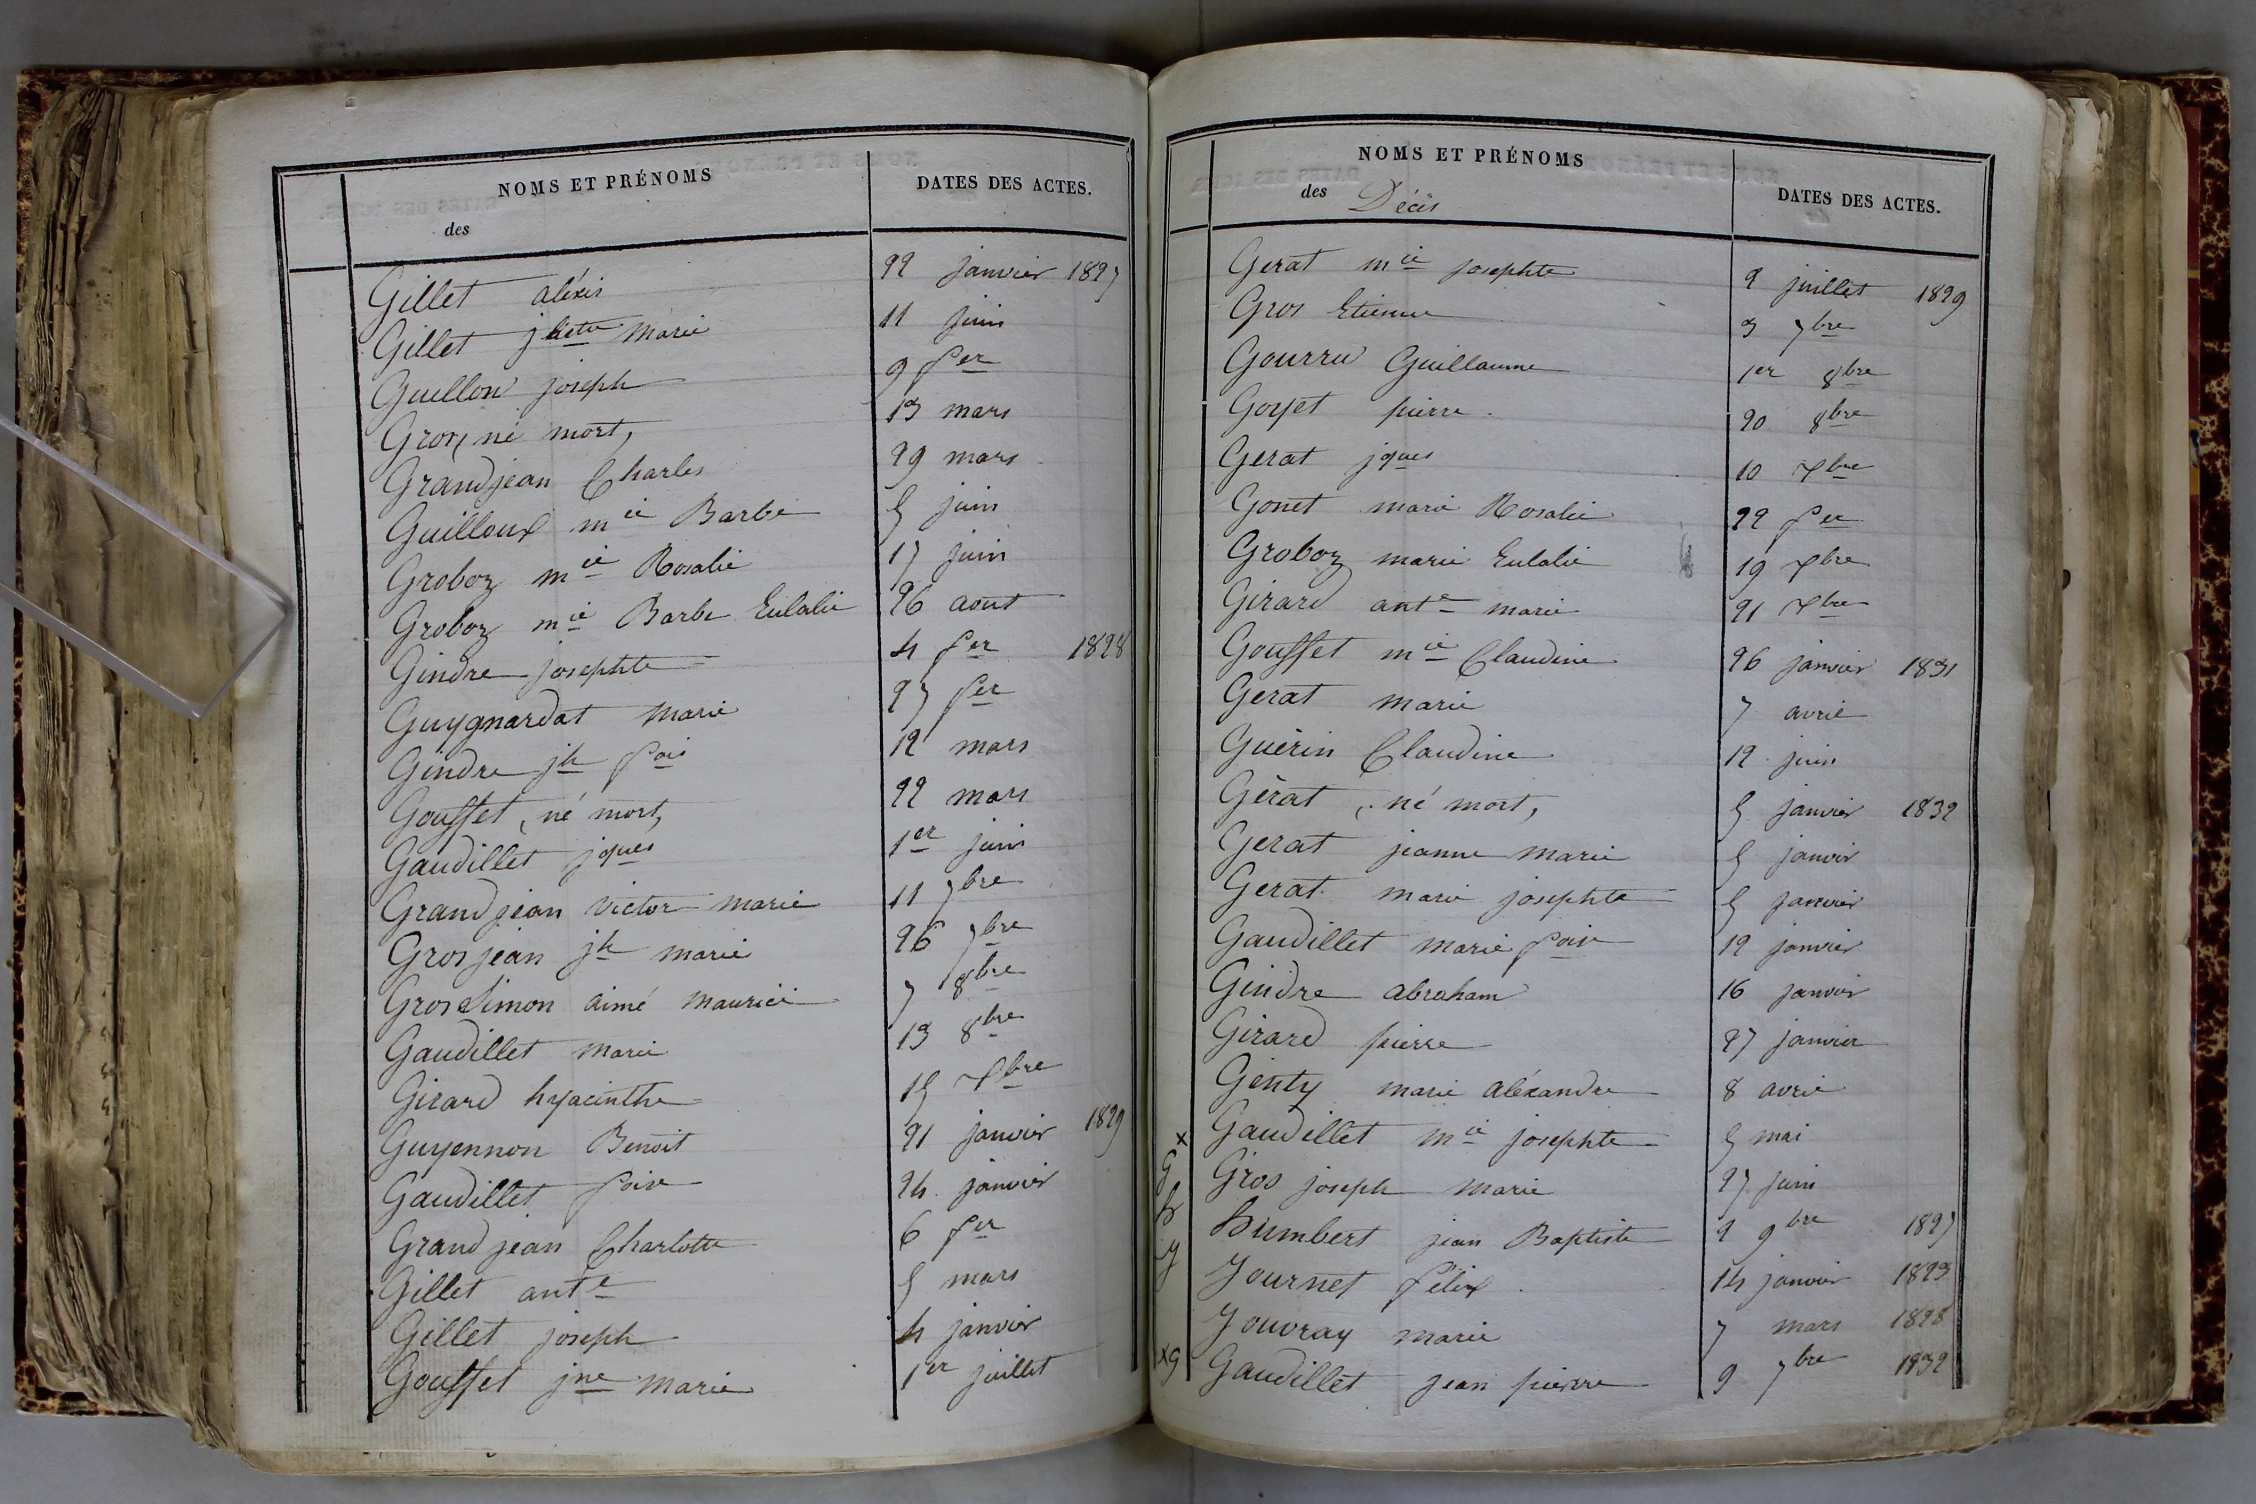 NOMS ET PRÉNOMS
DATES DES ACTES.
des
Gillet aléxis 22 janvier 1827
Gillet jbste marie 11 juin
Guillon joseph 9 fer
Gros, né mort, 13 mars
Grandjean Charles 29 mars
Guilloux mie Barbe 5 juin
Groboz mie Rosalie 17 juin
Groboz mie Barbe Eulalie 26 aout
Gindre josephte 4 fer 1828
Guygnardat marie 27 fer
Gindre jh fois 12 mars
Gouffet, né mort, 22 mars
Gaudillet jques 1er juin
Grandjean victor marie 11 7bre
Grosjean jh marie 26 7bre
Gros Simon aimé maurice 7 8bre
Gaudillet marie 13 8bre
Girard hyacinthe 15 Xbre
Guyennon Benoit 21 janvier 1829
Gaudillet foise 24 janvier
Grandjean Charlotte 6 fer
Gillet ante 5 mars
Gillet joseph 4 janvier
Gouffet jne marie 1er juillet
NOMS ET PRÉNOMS
DATES DES ACTES.
des Décès
Gerat mie josephte 2 juillet 1829
Gros Etienne 3 7bre
Gourru Guillaume 1er 8bre
Goyet pierre. 20 8bre
Gerat jques 10 Xbre
Gonet marie Rosalie 22 fer
Groboz marie Eulalie 19 Xbre
Girard ante marie 21 Xbre
Gouffet mie Claudine 26 janvier 1831
Gerat marie 7 avril
Guérin Claudine 12 juin
Gérat, né mort, 5 janvier 1832
Gerat jeanne marie 5 janvier
Gerat marie josephte 5 janvier
Gaudillet marie foise 12 janvier
Gindre abraham 16 janvier
Girard pierre 27 janvier
Genty marie aléxandre 8 avril
x Gaudillet mie josephte 5 mai
G Gros joseph marie 27 juin
h humbert jean Baptiste 2 9bre 1827
J Journet félix. 14 janvier 1823
Jouvray marie 7 mars 1828
xG Gaudillet jean pierre 9 7bre 1832